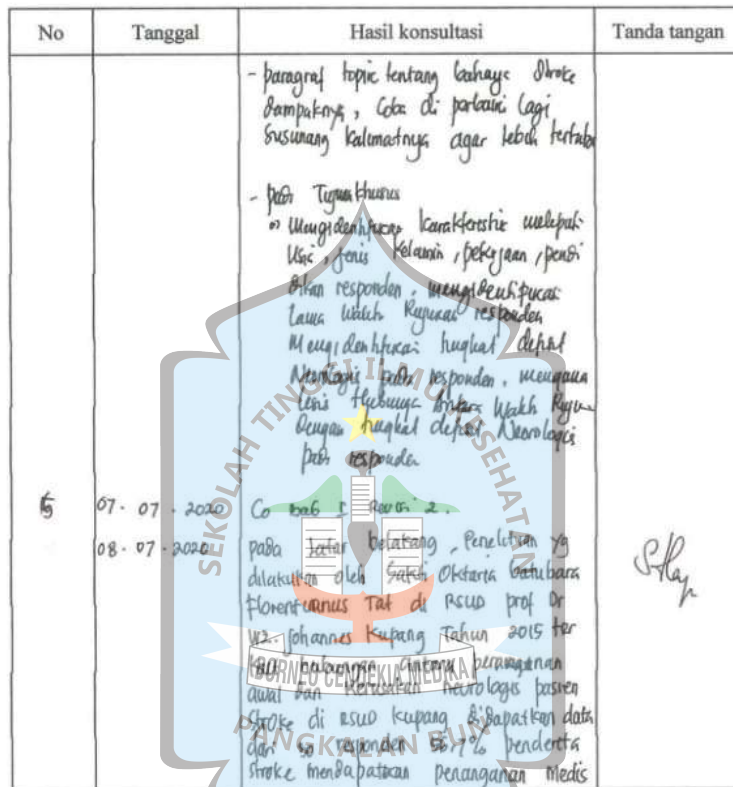 No Tanggal Hasil konsultasi Tanda tangan
- paragraf topic tentang bahaya stroke
dampaknya, Coba di perbaiki lagi
susunang kalimatnya agar lebih
- pada Tujuan khusus
Mengidentifikasi karakteristic meliputi
Usia, jenis kelamin, pekerjaan, pendi
dikan responden, mengidentifikasi
Lama Waktu Rujukan responden
Mengidentifikasi tingkat defisit
Neurologis pada responden, mengana
lisis Hubunga Antara Waktu Rujuka
Dengan tingkat defisit Neorologis
pada responden
5 07.07.2020 Co bab I Revisi 2.
08.07.2020 pada latar belakang, Penelitian yg
dilakukan oleh Sakti Oktaria Batubara
Florentianus Tat di RSUD prof Dr
WZ. Johannes Kupang Tahun 2015 ter
hubungan antara penanganan
awal dan Kerusakan neurologis pasien
Stroke di RSUD Kupang didapatkan data
dari 30 responden 56,7% penderita
stroke mendapatkan penanganan Medis
SEKOLAH TINGGI ILMU KESEHATAN
BORNEO CENDEKIA MEDIKA
PANGKALAN BUN